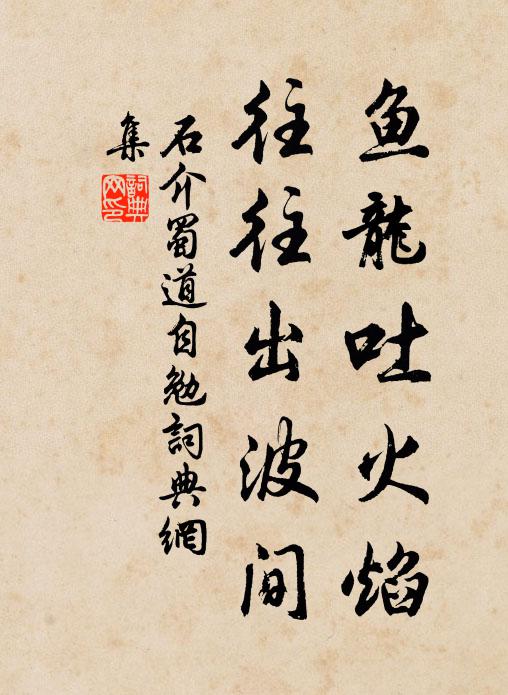 鱼龍吐火焰
往往出波间
石介蜀道自勉詞典網
集
詞典
网印